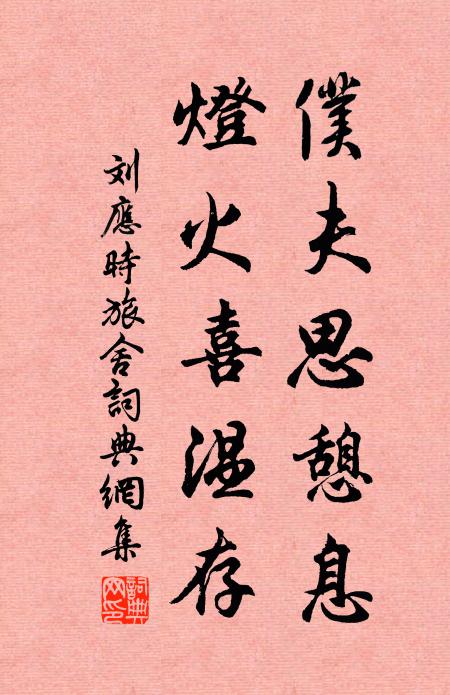 僕夫思憩息
燈火喜温存
刘應時旅舍詞典網集
詞典
网印